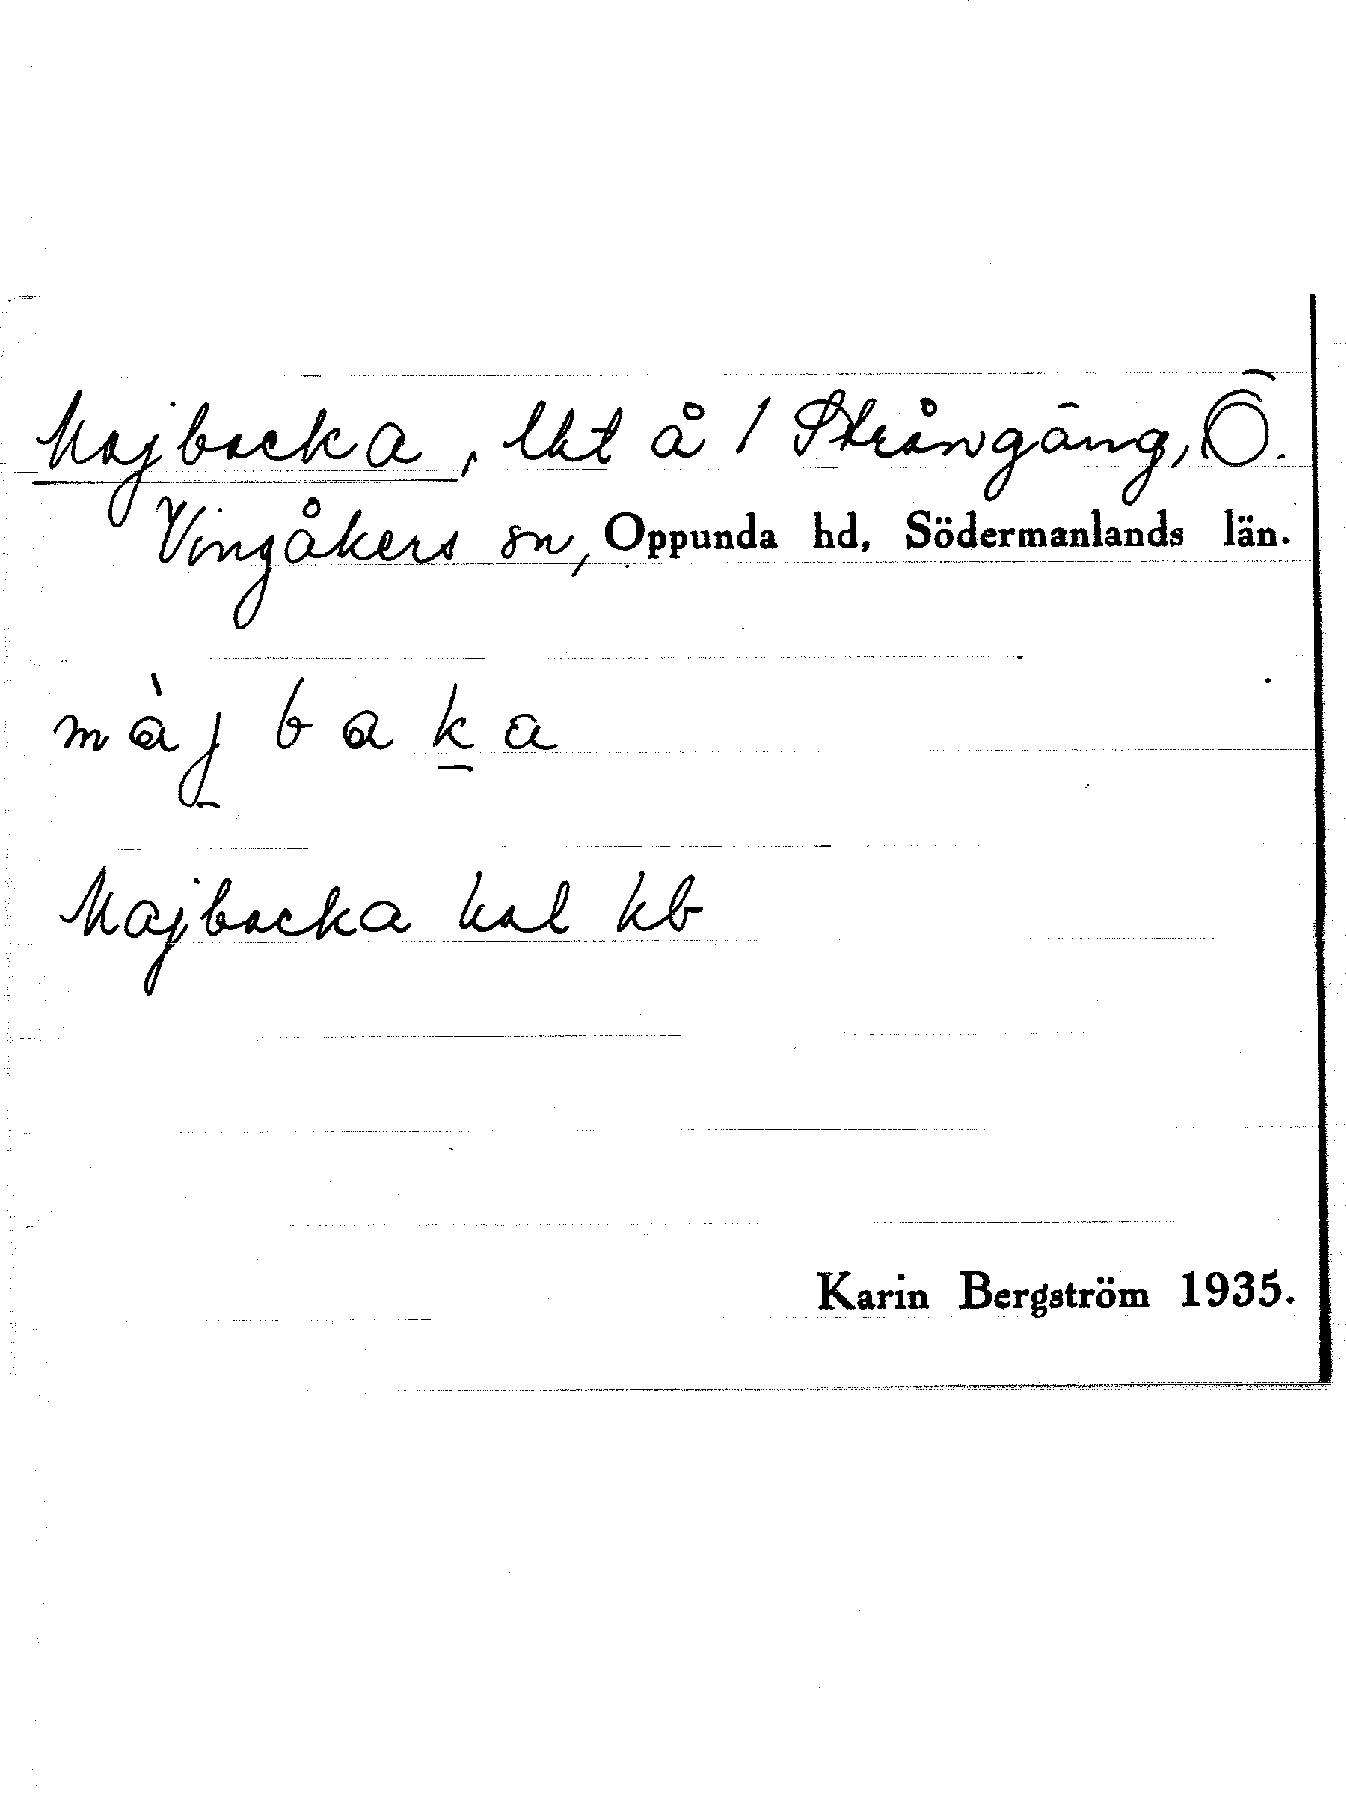 Majbacka, lht å 1 Strångäng, Ö.
Vingåkers sn, Oppunda hd, Södermanlands län.
màj baka
Majbacka hsl kb
Karin Bergström 1935.